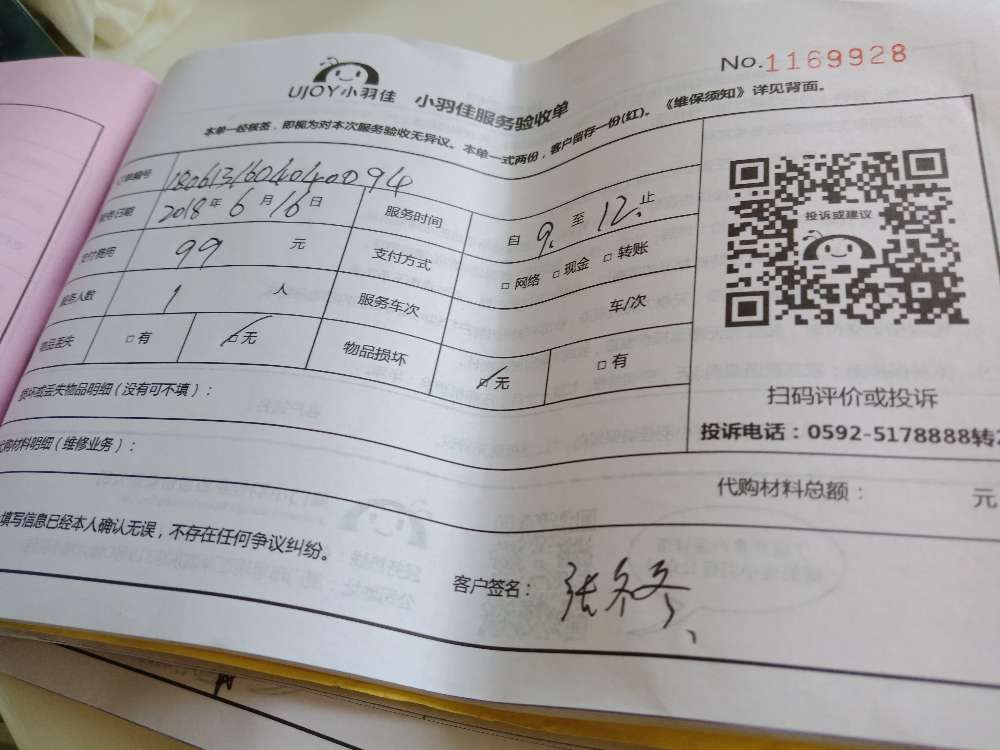 No.1169928
UJOY小羽佳 小羽佳服务验收单
本单一经核签，即视为对本次服务验收无异议。本单一式两份，客户留存一份(红)。《维保须知》详见背面。
订单编号 18061316040400094
服务日期 2018年6月16日 服务时间 自9.至12.止
支付费用 99 元 支付方式 □网络 □现金 □转账
服务人数 1 人 服务车次 车/次
物品丢失 □有 □无 物品损坏 □无 □有
损坏或丢失物品明细（没有可不填）：
代购材料明细（维修业务）：
投诉或建议
扫码评价或投诉
投诉电话：0592-5178888转2
代购材料总额： 元
填写信息已经本人确认无误，不存在任何争议纠纷。
客户签名： 张